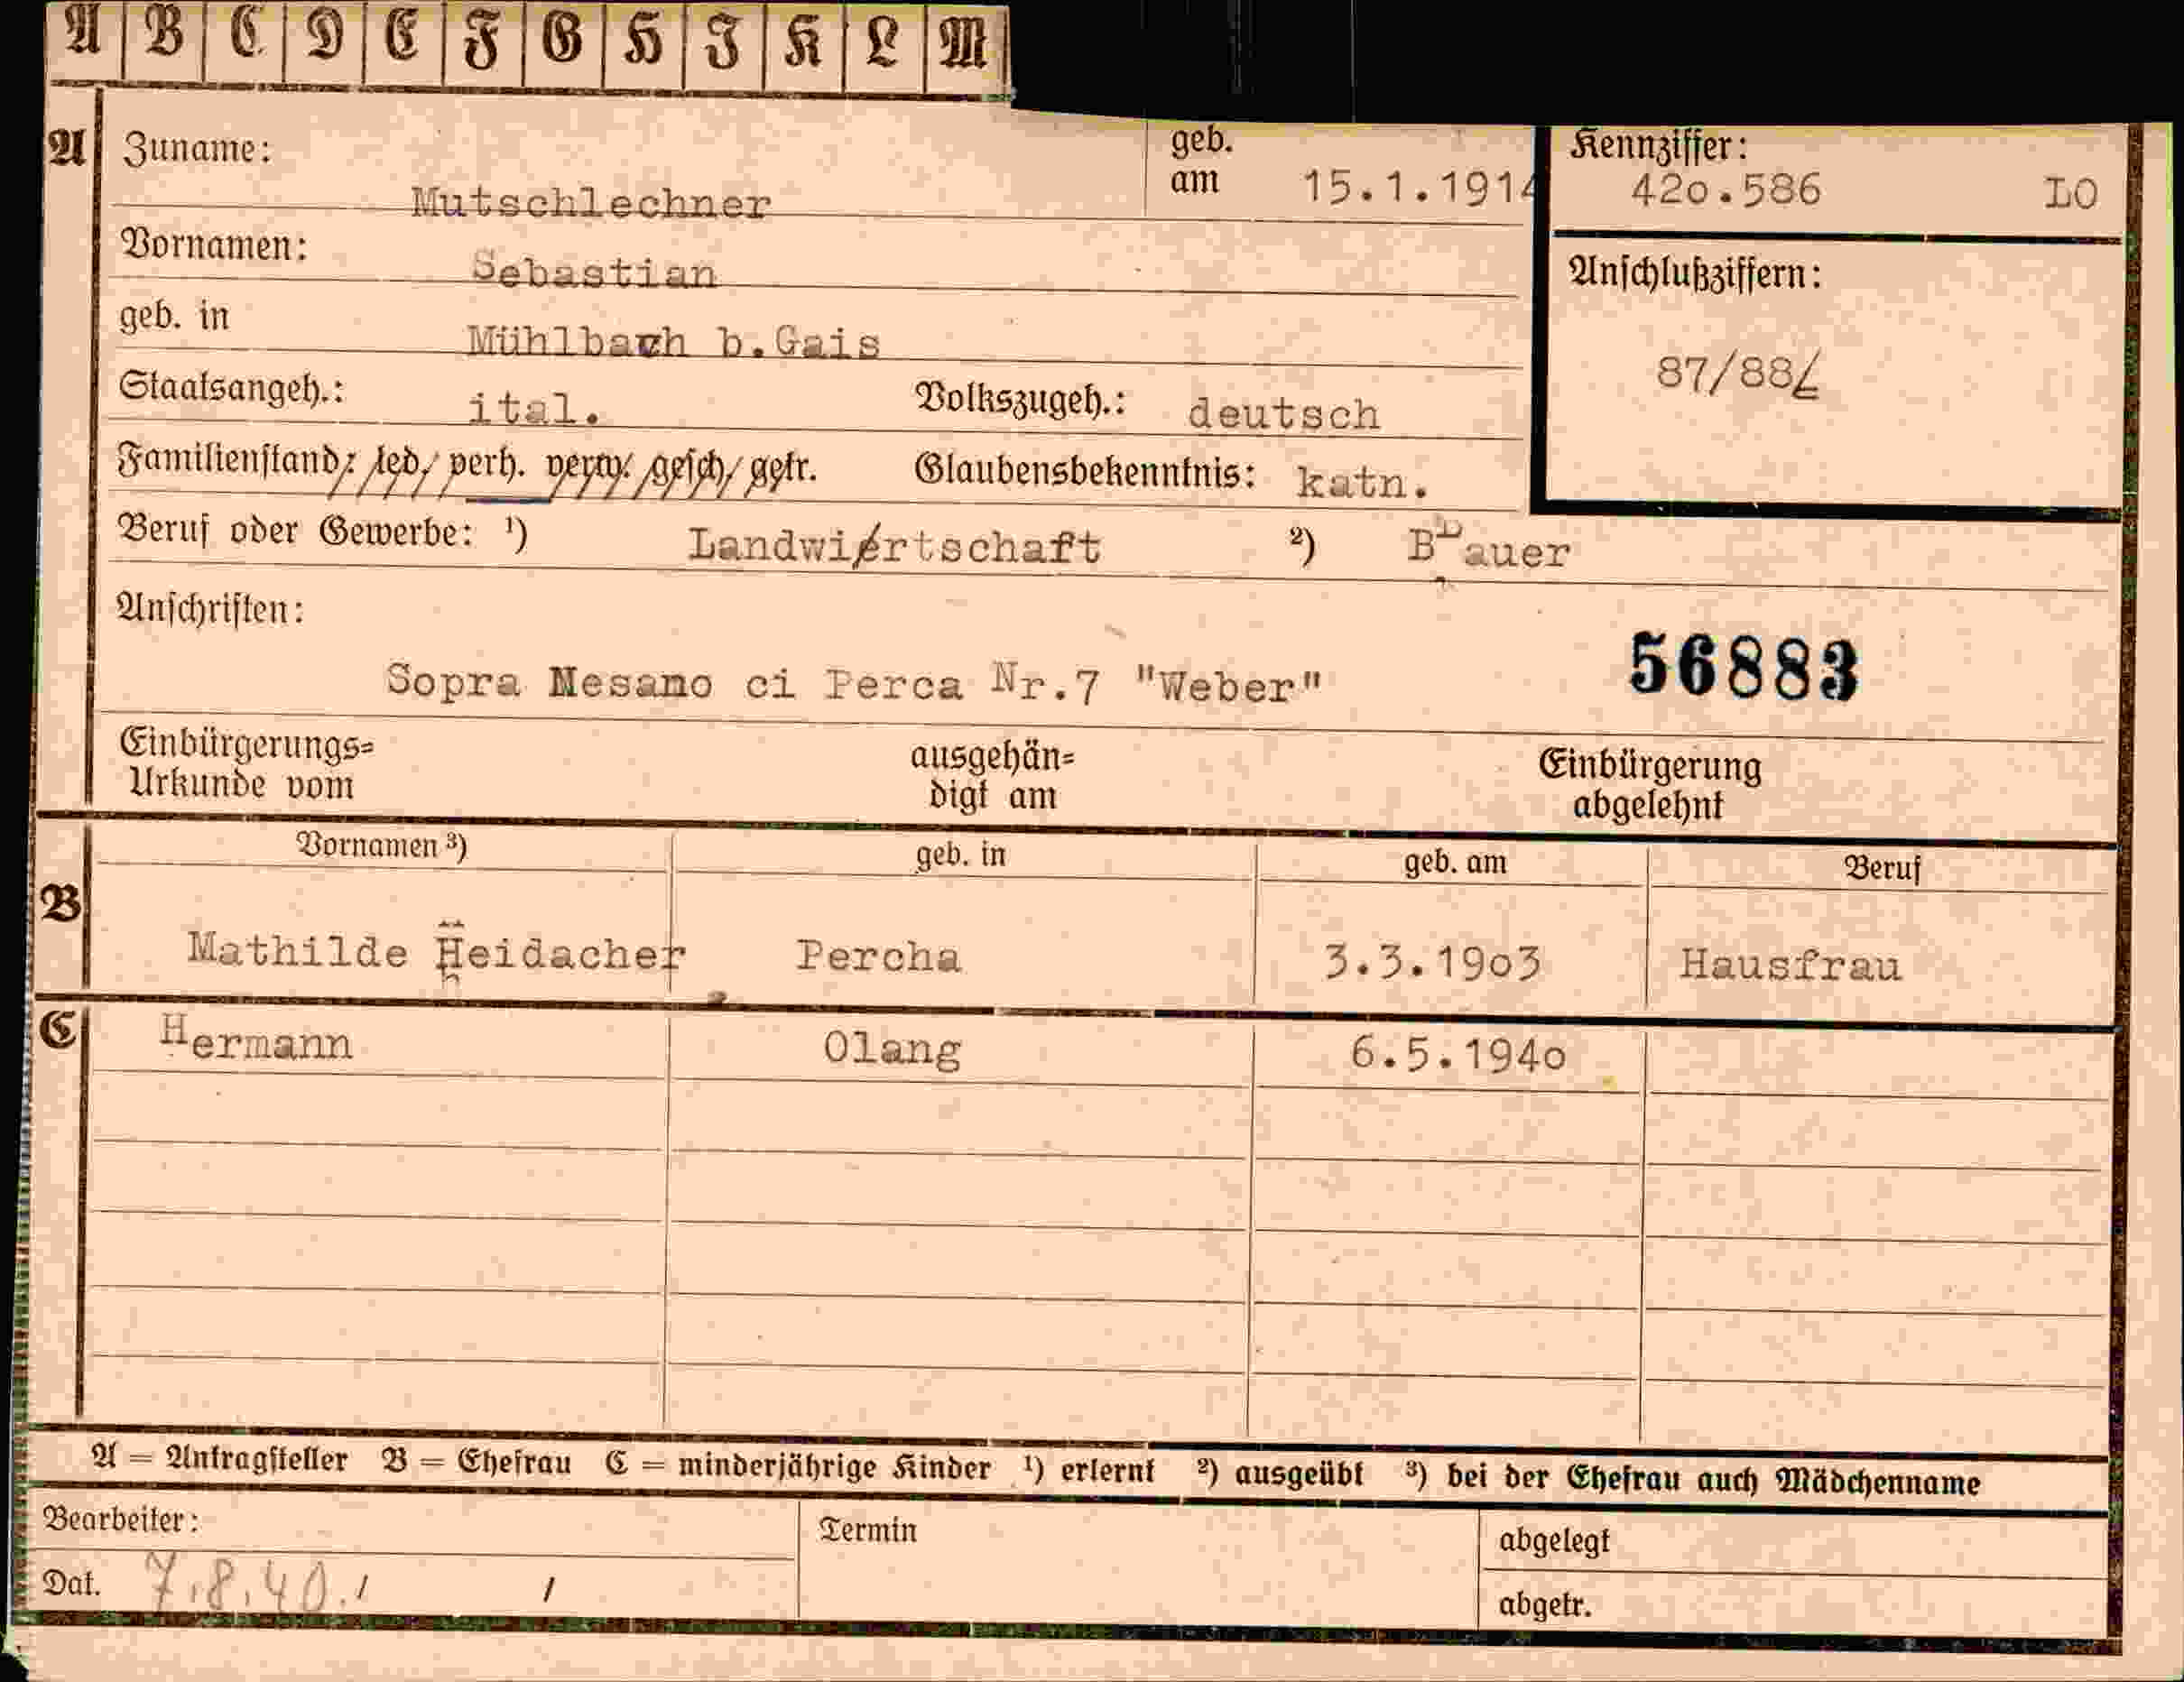 A B C D E F G H I K L M
A Zuname: Mutschlechner geb. am 15.1.1914 Kennziffer: 420.586 LO
Vornamen: Sebastian
Anschlußziffern: 87/88
geb. in Mühlbach b.Gais
Staatsangeh.: ital. Volkszugeh.: deutsch
Familienstand: led. verh. verw. gesch. getr. Glaubensbekenntnis: kath.
Beruf oder Gewerbe: ¹) Landwirtschaft ²) Bauer
Anschriften:
56883
Sopra Nesano ci Perca Nr.7 "Weber"
Einbürgerungs=
Urkunde vom
ausgehän=
digt am
Einbürgerung
abgelehnt
Vornamen ³) geb. in geb. am Beruf
B Mathilde Heidacher Percha 3.3.1903 Hausfrau
C Hermann Olang 6.5.1940
A = Antragsteller B = Ehefrau C = minderjährige Kinder ¹) erlernt ²) ausgeübt ³) bei der Ehefrau auch Mädchenname
Bearbeiter: Termin abgelegt
Dat. 7.8.40. / / abgetr.